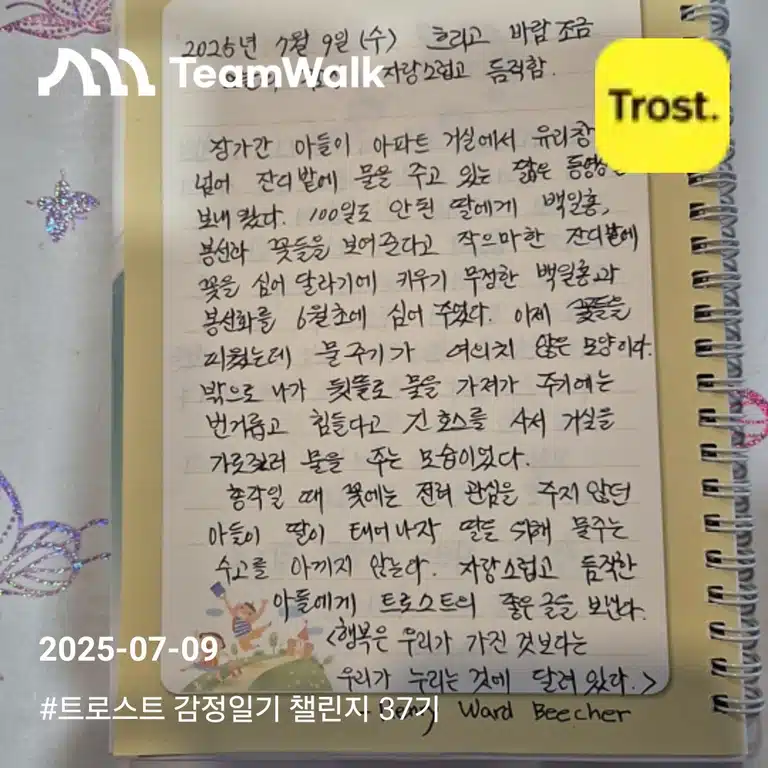 2025년 7월 9일 (수) 흐리고 바람 조금
TeamWalk
자랑스럽고 듬직함.
Trost.
장가간 아들이 아파트 거실에서 유리창
넘어 잔디밭에 물을 주고 있는 짧은 동영상을
보내 왔다. 100일도 안된 딸에게 백일홍,
봉선화 꽃들을 보여준다고 작으마한 잔디밭에
꽃을 심어 달라기에 키우기 무정한 백일홍과
봉선화를 6월초에 심어 주었다. 이제 꽃들을
피웠는데 물주기가 여의치 않은 모양이다.
밖으로 나가 뒷뜰로 물을 가져가 주기에는
번거롭고 힘들다고 긴 호스를 사서 거실을
가로질러 물을 주는 모습이었다.
총각일 때 꽃에는 전혀 관심을 주지 않던
아들이 딸이 태어나자 딸을 위해 물주는
수고를 아끼지 않는다. 자랑스럽고 듬직한
아들에게 트로스트의 좋은 글을 보낸다.
<행복은 우리가 가진 것보다는
우리가 누리는 것에 달려 있다.>
Ward Beecher
2025-07-09
#트로스트 감정일기 챌린지 37기